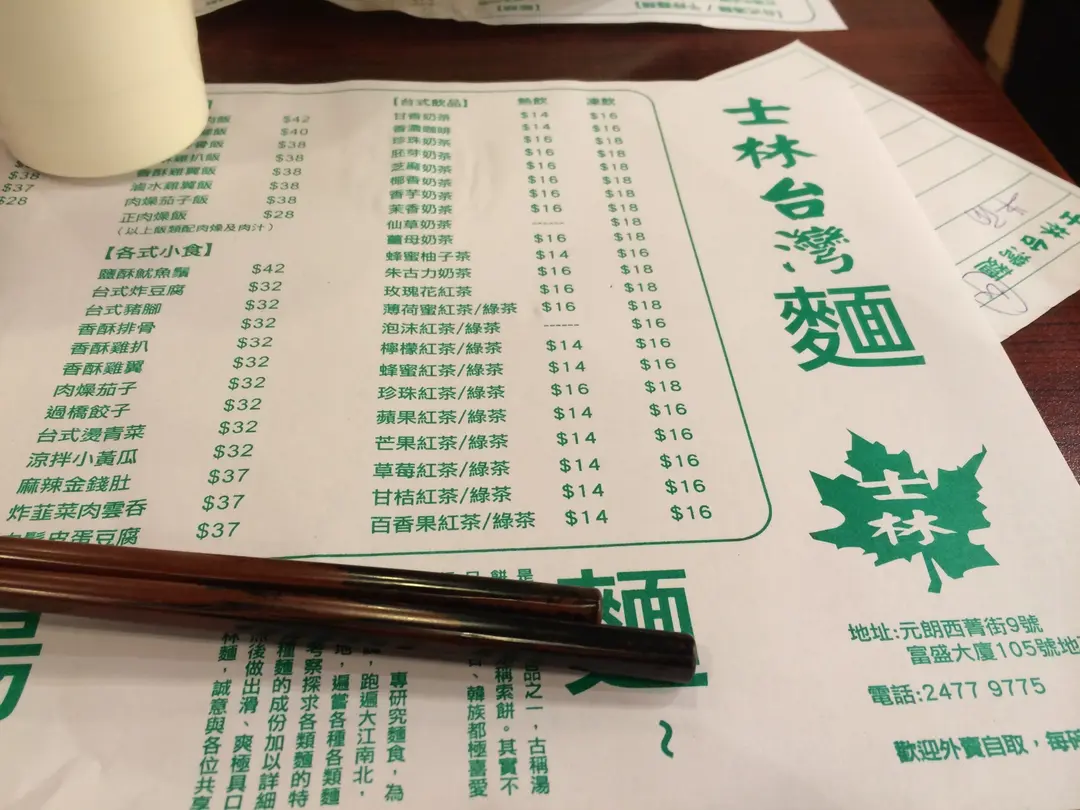 $38
$37
$28
肉飯 $42
飯 $40
骨飯 $38
雞扒飯 $38
香酥雞翼飯 $38
滷水雞翼飯 $38
肉燥茄子飯 $38
正肉燥飯 $28
(以上飯類配肉燥及肉汁)
【各式小食】
鹽酥魷魚鬚 $42
台式炸豆腐 $32
台式豬腳 $32
香酥排骨 $32
香酥雞扒 $32
香酥雞翼 $32
肉燥茄子 $32
過橋餃子 $32
台式燙青菜 $32
涼拌小黃瓜 $32
麻辣金錢肚 $37
炸韮菜肉雲吞 $37
皮蛋豆腐 $37
【台式飲品】 熱飲 凍飲
甘香奶茶 $14 $16
香濃咖啡 $14 $16
珍珠奶茶 $16 $18
胚芽奶茶 $16 $18
芝麻奶茶 $16 $18
椰香奶茶 $16 $18
香芋奶茶 $16 $18
茉香奶茶 $16 $18
仙草奶茶 ------ $18
薑母奶茶 $16 $18
蜂蜜柚子茶 $14 $16
朱古力奶茶 $16 $18
玫瑰花紅茶 $16 $18
薄荷蜜紅茶/綠茶 $16 $18
泡沫紅茶/綠茶 ------ $16
檸檬紅茶/綠茶 $14 $16
蜂蜜紅茶/綠茶 $14 $16
珍珠紅茶/綠茶 $16 $18
蘋果紅茶/綠茶 $14 $16
芒果紅茶/綠茶 $14 $16
草莓紅茶/綠茶 $14 $16
甘桔紅茶/綠茶 $14 $16
百香果紅茶/綠茶 $14 $16
士林台灣麵
士林
地址:元朗西菁街9號
富盛大廈105號地
電話:2477 9775
歡迎外賣自取，每
士林台灣麵
麵~
品之一，古稱湯
稱索餅。其實不
、韓族都極喜愛
專研究麵食，為
，跑遍大江南北，
地，遍嘗各種各類麵
考察探求各類麵的特
種麵的成份加以詳細
然後做出滑、爽極具口
林麵，誠意與各位共享